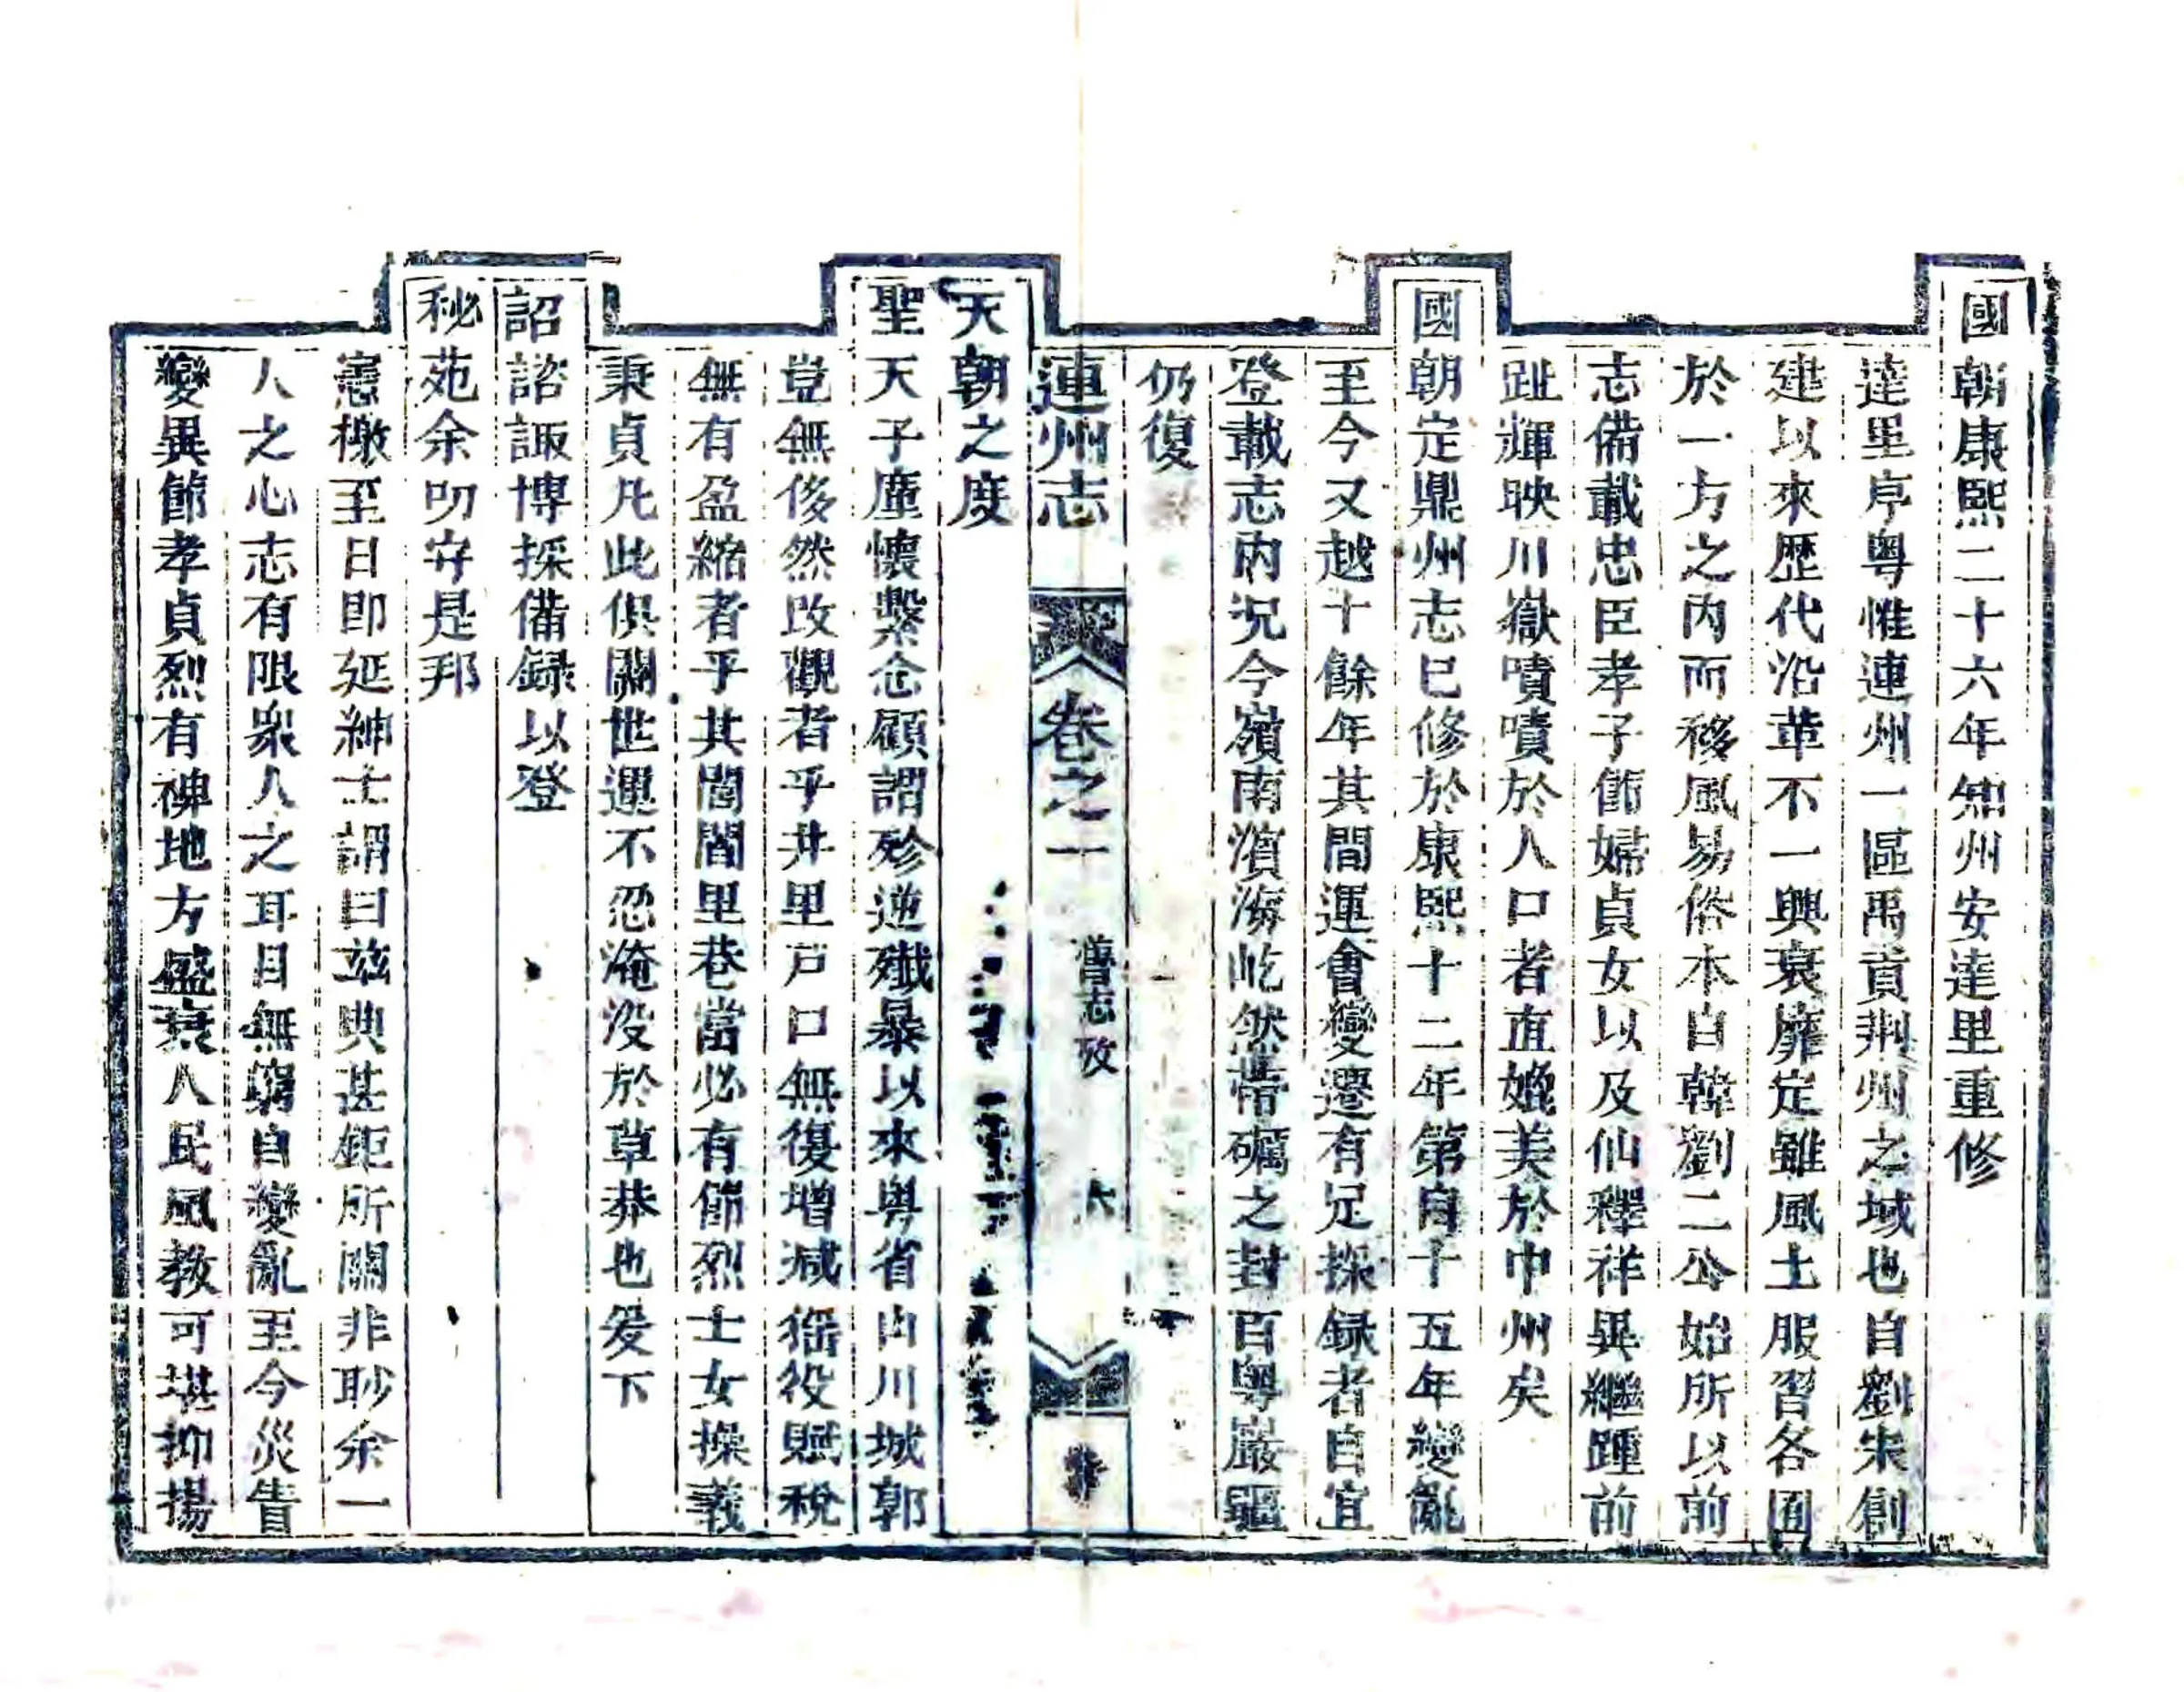 國朝康熙二十六年知州安達里重修
達里序粵惟連州一區禹貢荆州之域也自劉宋創
建以來歷代沿革不一興衰靡定雖風土服習各囿
於一方之內而移風易俗本自韓劉二公始所以前
志備載忠臣孝子節婦貞女以及仙釋祥異繼踵前
趾輝映川嶽嘖嘖於人口者直媲美於中州矣
國朝定鼎州志已修於康熙十二年第自十五年變亂
至今又越十餘年其間運會變遷有足採録者自宜
登載志內況今嶺南濱海屹然帶礪之封百粵巖疆
仍復
連州志 卷之一 舊志攷 六
天朝之度
聖天子塵懷繫念顧謂殄逆殲暴以來粵省山川城郭
豈無俊然改觀者乎井里戸口無復增減徭役賦稅
無有盈縮者乎其閭閻里巷當必有節烈士女操義
秉貞凡此俱關世運不忍淹没於草莽也爰下
詔諮諏博採備録以登
秘苑余叨守是邦
憲檄至日即延紳士謂曰兹典甚鉅所關非眇余一
人之心志有限衆人之耳目無窮自變亂至今災眚
變異節孝貞烈有裨地方盛衰人民風教可堪抑揚